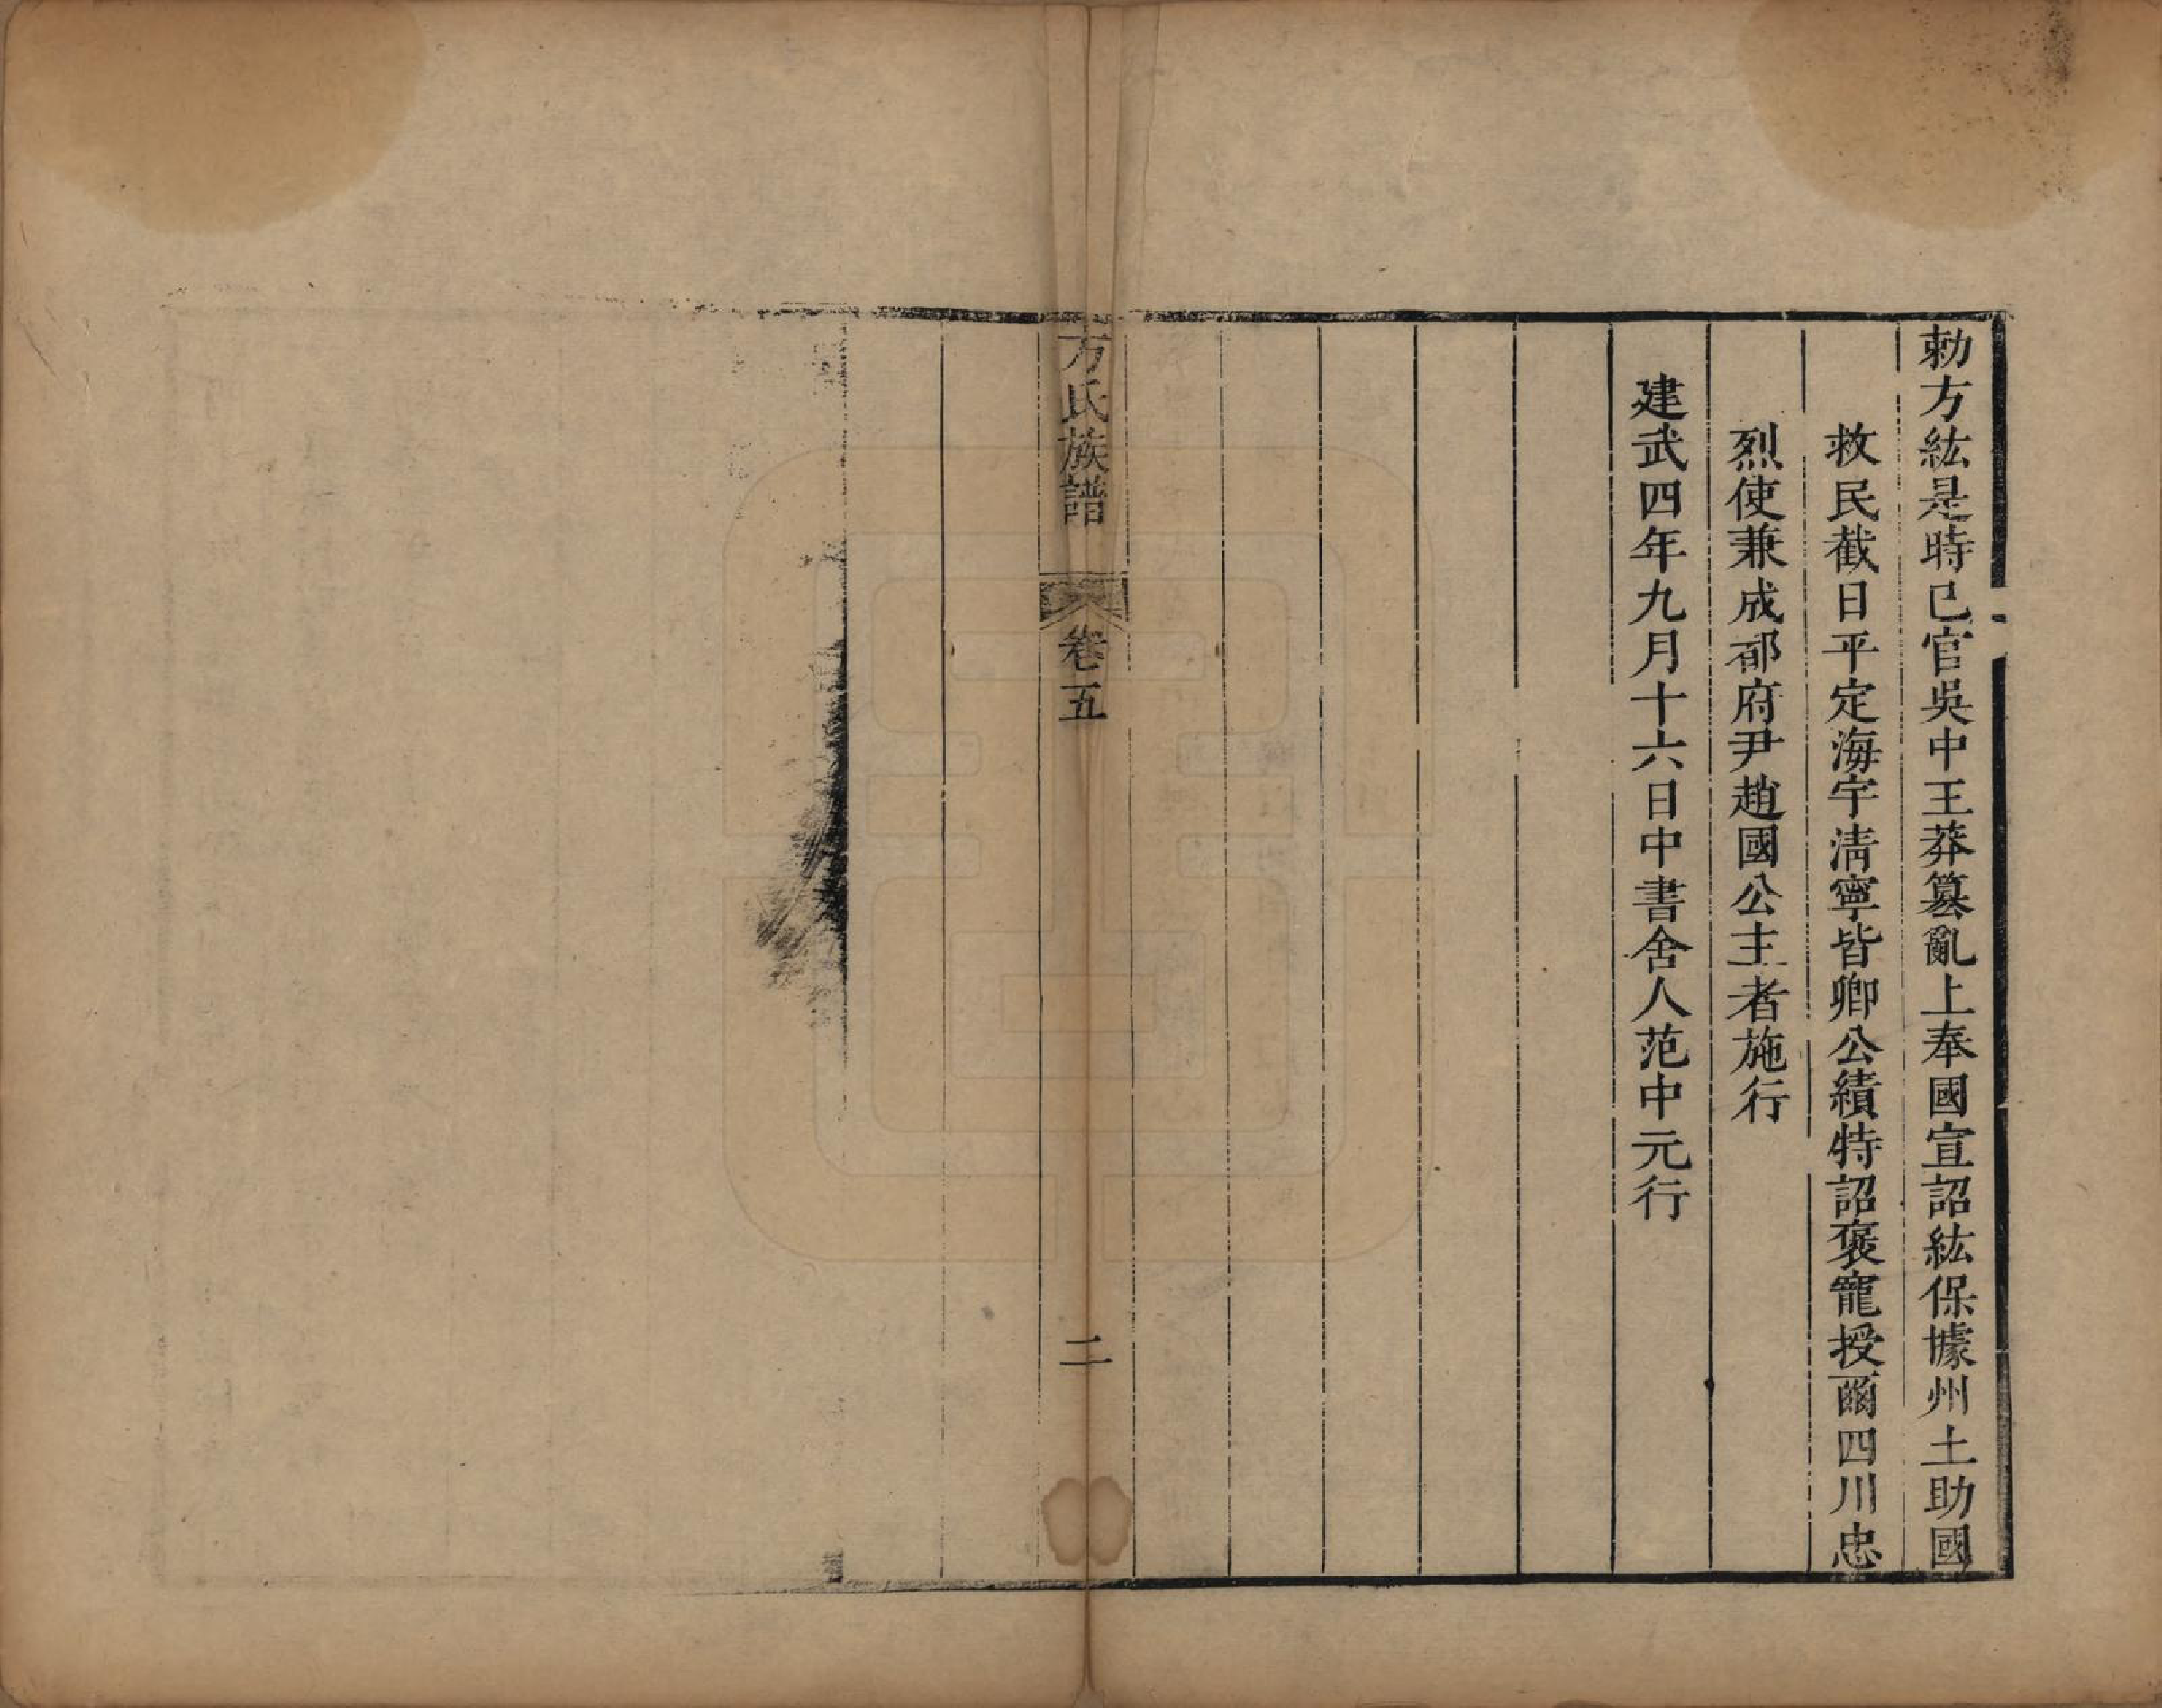 勅方紘是時已官吳中王莽篡亂上奉國宣詔紘保據州土助國
救民截日平定海宇清寧皆卿公績特詔褒寵授爾四川忠
烈使兼成都府尹趙國公主者施行
建武四年九月十六日中書舍人范中元行
方氏族譜
卷五
二